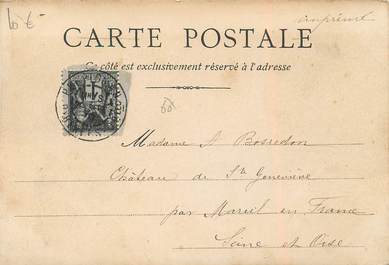 10 €
imprimé
CARTE POSTALE
Ce côté est exclusivement réservé à l'adresse
60
Madame A Bosredon
Château de Ste Geneviève
par Mareil en France
Seine et Oise